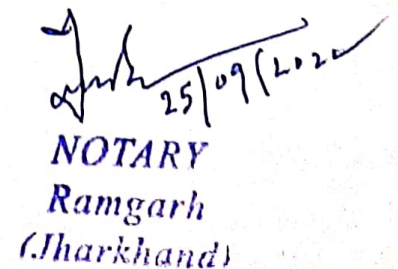 25/09/2020
NOTARY
Ramgarh
(Jharkhand)